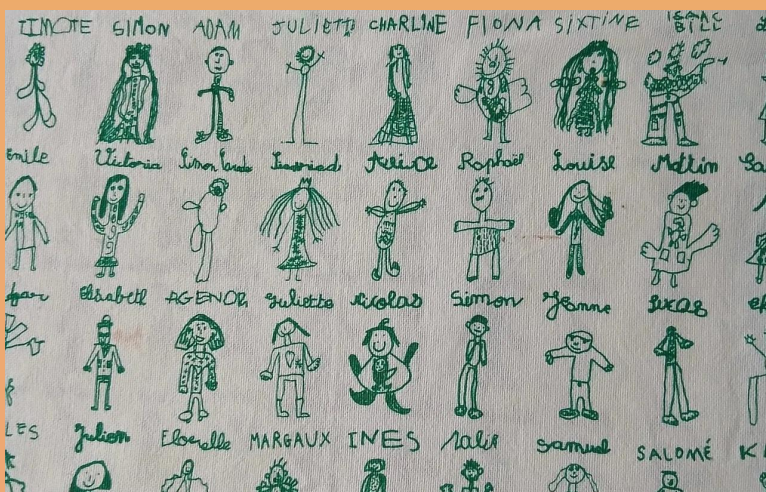 TIMOTE SIMON ADAM JULIETTE CHARLINE FIONA SIXTINE ISAAC BILL
Emile Victoria Simon Alice Raphaël Louise Martin
Elisabeth AGENOR Juliette Nicolas Simon Jeanne LUCAS
LES Julien MARGAUX INES Samuel SALOMÉ K